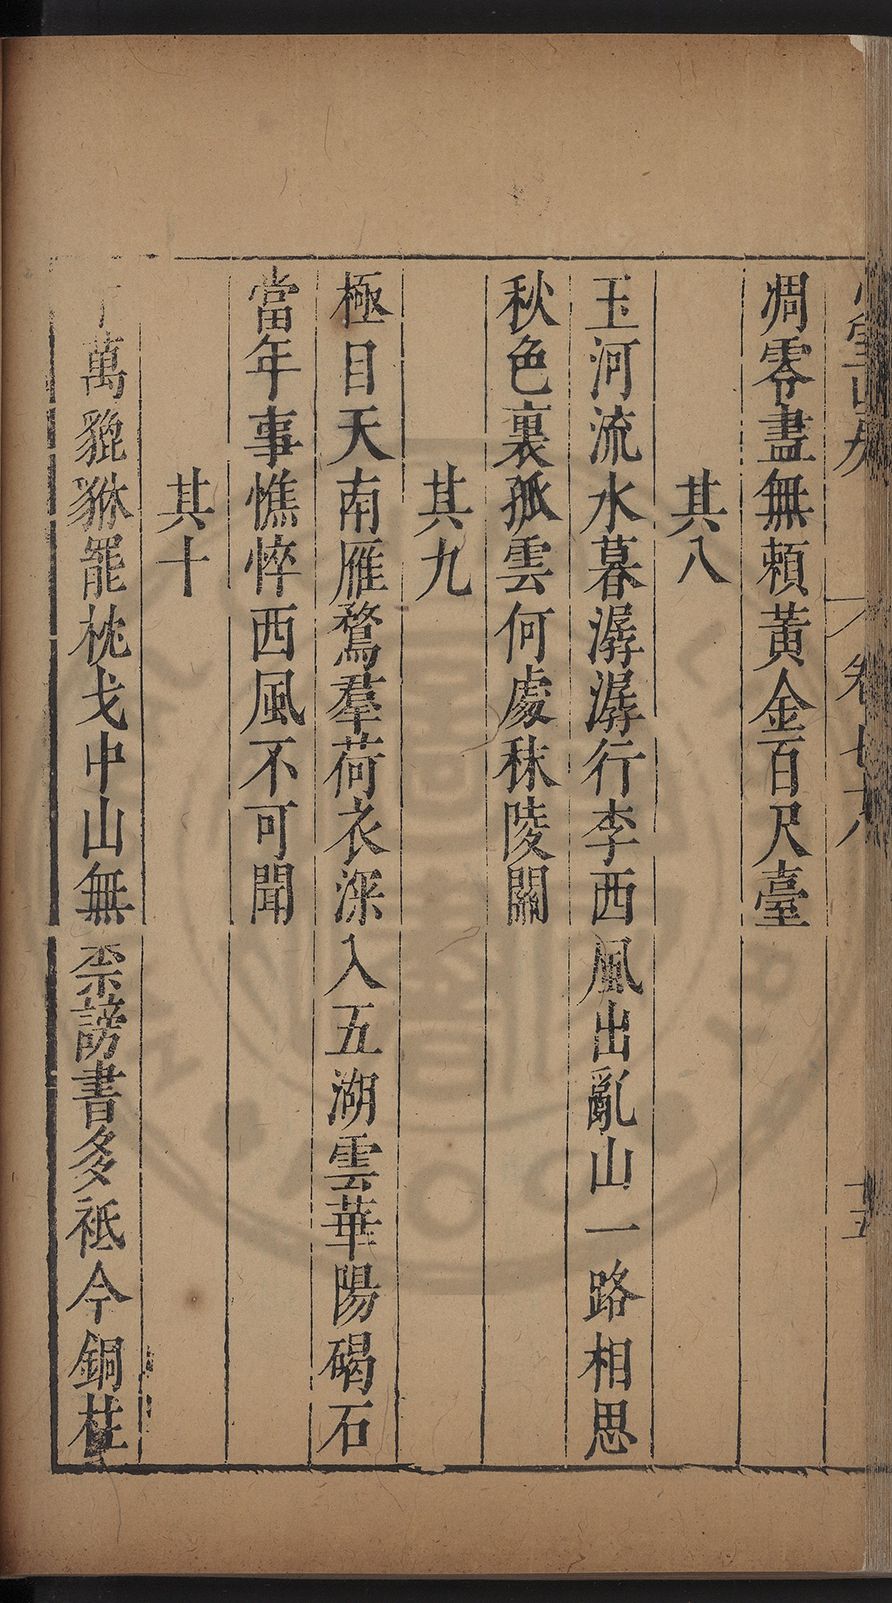 凋零盡無賴黃金百尺臺
其八
玉河流水暮潺潺行李西風出亂山一路相思
秋色裏孤雲何處秣陵關
其九
極目天南雁鶩羣荷衣深入五湖雲華陽碣石
當年事憔悴西風不可聞
其十
萬貔貅罷枕戈中山無柰謗書多祗今銅柱
卷七十八
十五